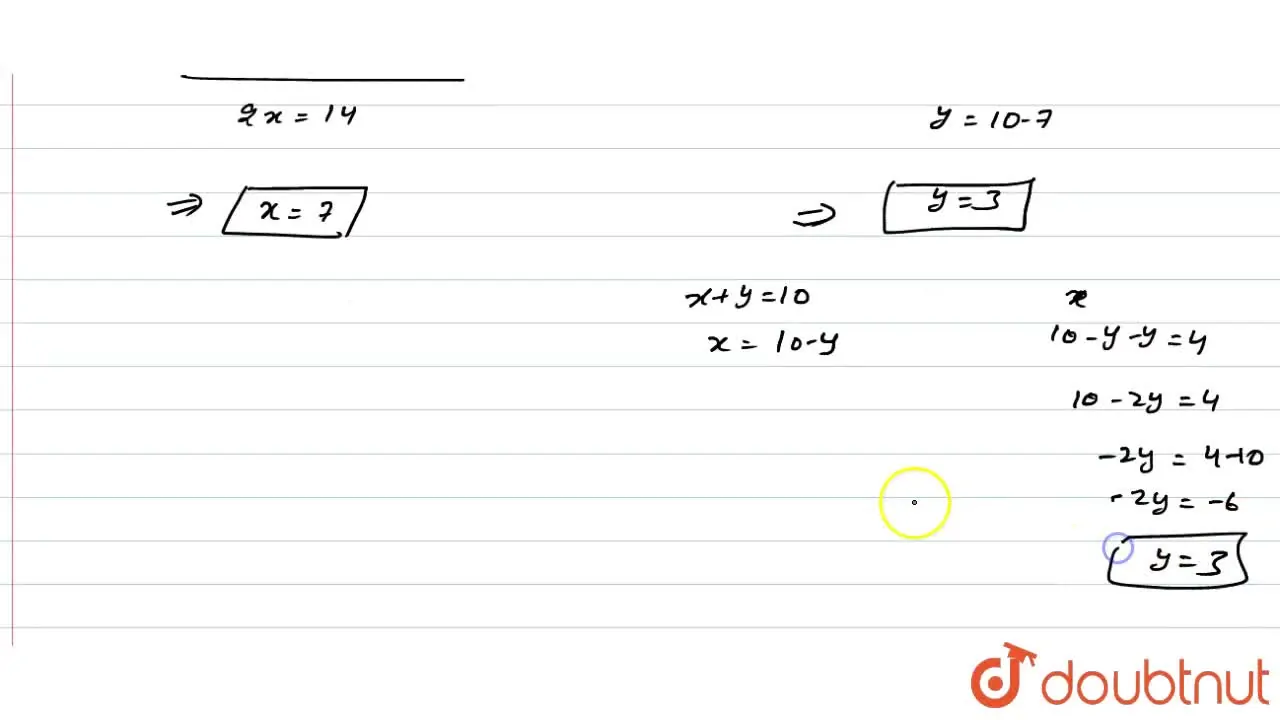 2x = 14
⇒ x = 7
y = 10-7
⇒ y = 3
x+y=10
x = 10-y
x
10-y-y=4
10-2y=4
-2y = 4-10
-2y = -6
y=3
doubtnut